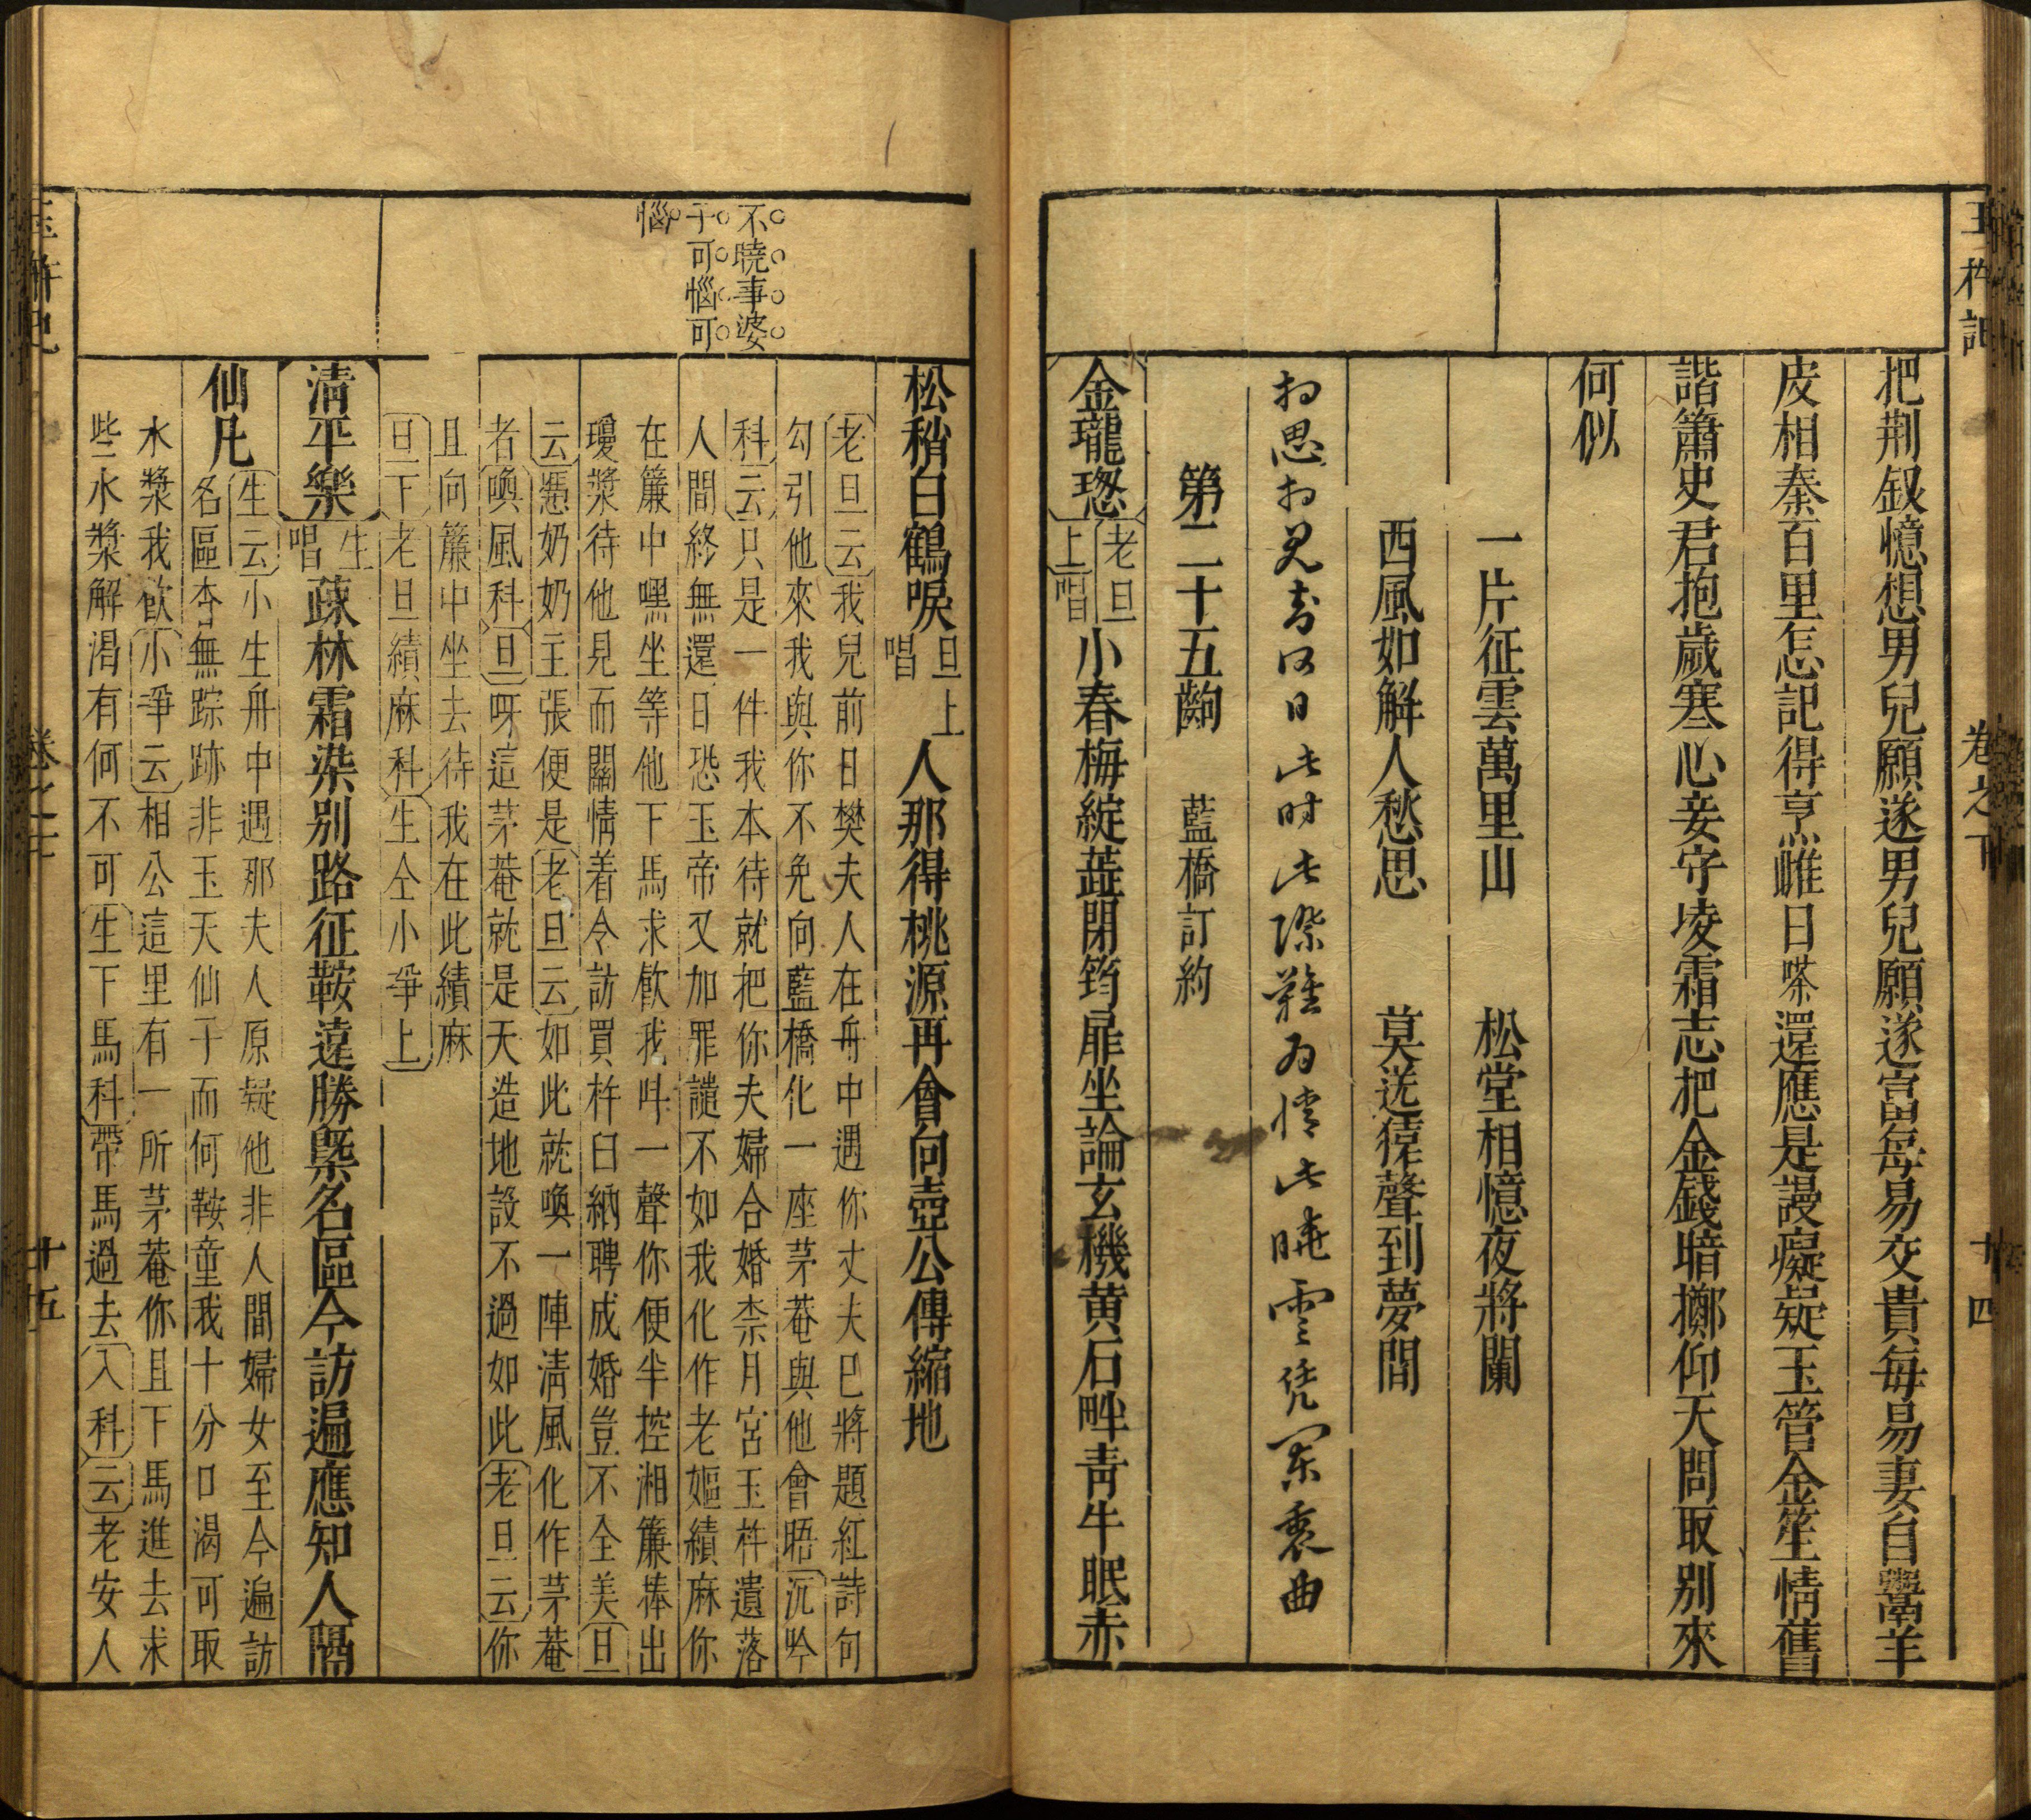 玉杵記 卷之下 十四
把荆釵憶想男兒願遂男兒願遂富每易交貴每易妻自鬻羊
皮相秦百里怎記得烹雌日嗏還應是謾癡疑玉管金笙情舊
諧簫史君抱歲寒心妾守凌霜志把金錢暗擲仰天問取別來
何似
一片征雲萬里山 松堂相憶夜將闌
西風如解人愁思 莫送猿聲到夢間
相思相見知何日此時此際難為情此曉雲凭闌裏曲
第二十五齣 藍橋訂約
金瓏璁 老旦上唱 小春梅綻蕋閉筠扉坐論玄機黃石畔靑牛眠赤
不曉事婆
子可惱可
惱
松稍白鶴唳 旦上唱 人那得桃源再會向壺公傳縮地
老旦云我兒前日樊夫人在舟中遇你丈夫已將題紅詩句
勾引他來我與你不免向藍橋化一座茅菴與他會晤沉吟
科云只是一件我本待就把你夫婦合婚柰月宮玉杵遺落
人間終無還日恐玉帝又加罪譴不如我化作老嫗績麻你
在簾中嘿坐等他下馬求飮我呌一聲你便半控湘簾捧出
瓊漿待他見而關情着令訪買杵臼納聘成婚豈不全美旦
云憑奶奶主張便是老旦云如此就喚一陣淸風化作茅菴
者喚風科旦呀這茅菴就是天造地設不過如此老旦云你
且向簾中坐去待我在此績麻
旦下老旦績麻科生仝小爭上
淸平樂 生唱 疎林霜染別路征鞍遠勝槩名區今訪遍應知人隔
仙凡 生云小生舟中遇那夫人原疑他非人間婦女至今遍訪
名區杳無踪跡非玉天仙子而何鞍童我十分口渴可取
水漿我飮小爭云相公這里有一所茅菴你且下馬進去求
些水漿解渴有何不可生下馬科帶馬過去入科云老安人
玉杵記 卷之下 十五